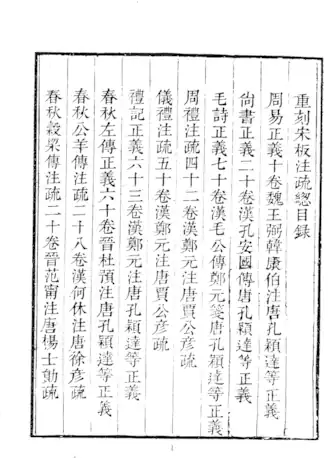 重刻宋板注疏總目錄
周易正義十卷魏王弼韓康伯注唐孔穎達等正義
尚書正義二十卷漢孔安國傳唐孔穎達等正義
毛詩正義七十卷漢毛公傳鄭元箋唐孔穎達等正義
周禮注疏四十二卷漢鄭元注唐賈公彥疏
儀禮注疏五十卷漢鄭元注唐賈公彥疏
禮記正義六十三卷漢鄭元注唐孔穎達等正義
春秋左傳正義六十卷晉杜預注唐孔穎達等正義
春秋公羊傳注疏二十八卷漢何休注唐徐彥疏
春秋穀梁傳注疏二十卷晉范甯注唐楊士勛疏